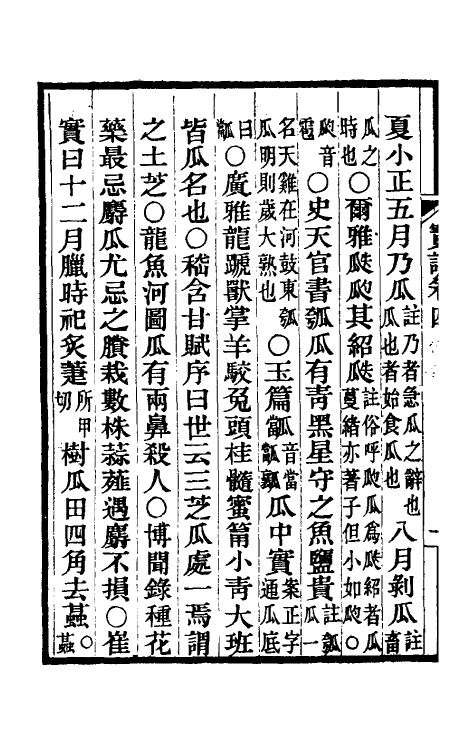 夏小正五月乃瓜註乃者急瓜之辭也瓜也者始食瓜也八月剝瓜註畜
瓜之時也○爾雅瓞瓝其紹瓞註俗呼瓝瓜爲瓞紹者瓜蔓緒亦著子但小如瓝○
瓝音雹○史天官書瓠瓜有青黑星守之魚鹽貴註瓠瓜一
名天雞在河鼓東瓠瓜明則歲大熟也○玉篇音當瓜中實案正字通瓜底
曰○廣雅龍蹏獸掌羊駮兔頭桂髓蜜筩小青大班
皆瓜名也○嵇含甘賦序曰世云三芝瓜處一焉謂
之土芝○龍魚河圖瓜有兩鼻殺人○博聞錄種花
藥最忌麝瓜尤忌之栽數株蒜薤遇麝不損○崔
實曰十二月臘時祀炙萐所甲切樹瓜田四角去蟲○蟲